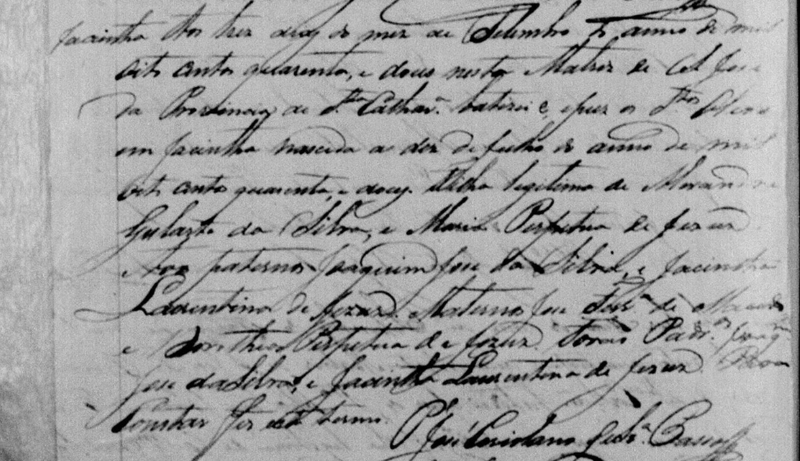 Jacintha Aos tres dias do mez de Setembro do anno de mil
oito centos quarenta, e dous nesta Matriz de S. José
da Provincia de Sta Cathar.a baptizei e, e puz os Stos Oleos
em Jacintha nascida aos dez de Julho do anno de mil
oito centos quarenta, e dous. Filha legitima de
Gularte da Silva, e Maria Perpetua de Jezus
Avos paternos Joaquim Jose da Silva, e Jacintha
Laurentina de Jezus. Maternos Jose de
e Dorothea Perpetua de Jezus. Joaq.m
Jose da Silva, e Jacintha Laurentina de Jezus. Para
Constar fiz este termo.
P.e José